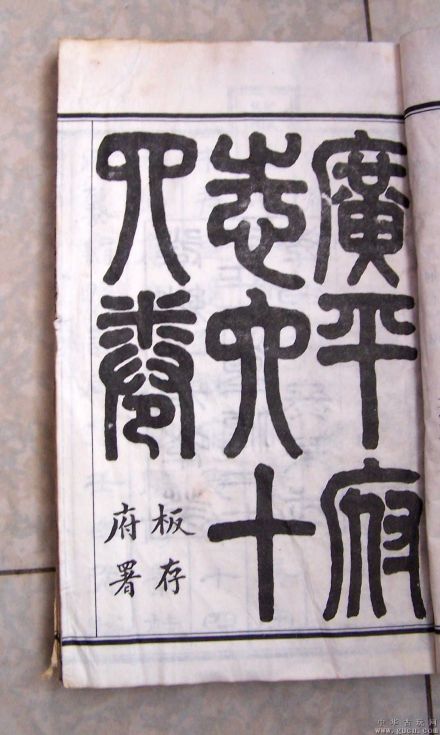 廣平府
志六十
四卷
板存
府署
中华古玩网
www.gucn.com